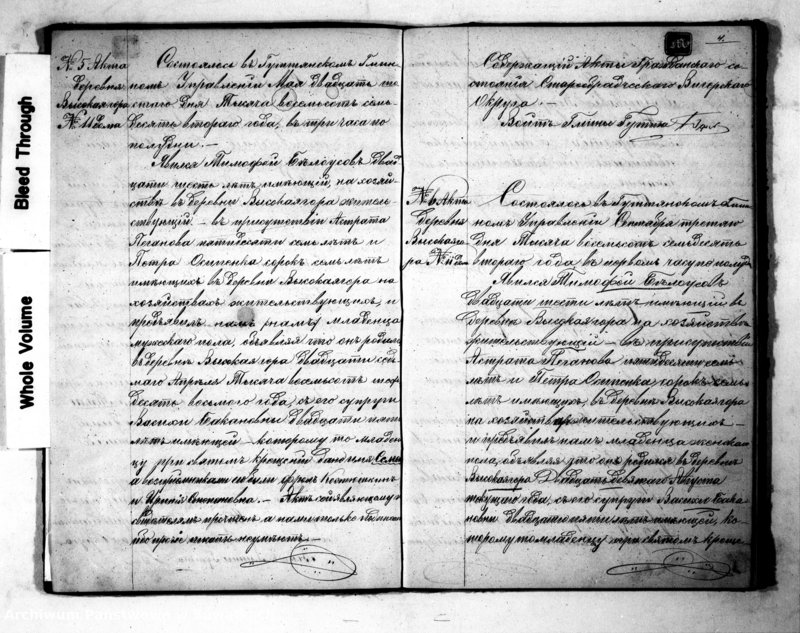 Bleed Through
Whole Volume
№ 5 Акта
Деревня
Высокая гора
№ 11 дома
Состоялось въ Гуттянскомъ Гмин-
номъ Управленіи Мая двадцать ше-
стаго дня Тысяча восемьсотъ семь-
десять втораго года, въ три часа по
полудни. —
Явился Тимофей Бѣлоусовъ двад-
цати шести лѣтъ имѣющій, на хозяй-
ствѣ въ деревни Высокаягора житель-
ствующій — въ присутствіи Астрата
Поганова пятидесяти семь лѣтъ и
Петра Осипенка сорокъ семь лѣтъ
имѣющихъ въ деревни Высокаягора на
хозяйствахъ жительствующихъ, и
предъявилъ намъ младенца
мужескаго пола, объявляя что онъ родился
въ деревни Высокая гора двадцати седь-
маго Апрѣля Тысяча восемьсотъ
десять восьмаго года, съ его супруги
Василки Бакановны двадцати пяти
лѣтъ имѣющей — которому то младен-
цу при святомъ крещеніи дано имя
а воспріемниками были
и — Актъ сей явающему и
свидѣтелямъ прочтенъ а нами только
ибо проч. писать неумѣютъ —
4.
Содержащій Акты Гражданскаго со-
стоянія Старообрядческаго
Округа. —
Войтъ Гмины Гутта
№ 6 Акта
Деревня
Высокаяго-
ра № 11 дома
Состоялось въ Гуттянскомъ Гмин-
номъ Управленіи Сентября третяго
дня Тысяча восемьсотъ семьдесять
втораго года, въ первомъ часу по полудни
Явился Тимофей Бѣлоусовъ
двадцати шести лѣтъ имѣющій въ
деревни Высокаягора на хозяйствѣ
жительствующій — въ присутствіи
Астрата Поганова пятидесяти семь
лѣтъ и Петра Осипенка сорокъ семь
лѣтъ имѣющихъ, въ деревни Высокаягора
на хозяйствѣ жительствующихъ —
и предъявилъ намъ младенца женскаго
пола, объявляя что онъ родился въ деревни
Высокаягора Двадцать девятаго Августа
текущаго года, съ его супруги Василки Бака-
новны двадцати пяти лѣтъ имѣющей, ко-
торому то младенцу при святомъ креще-